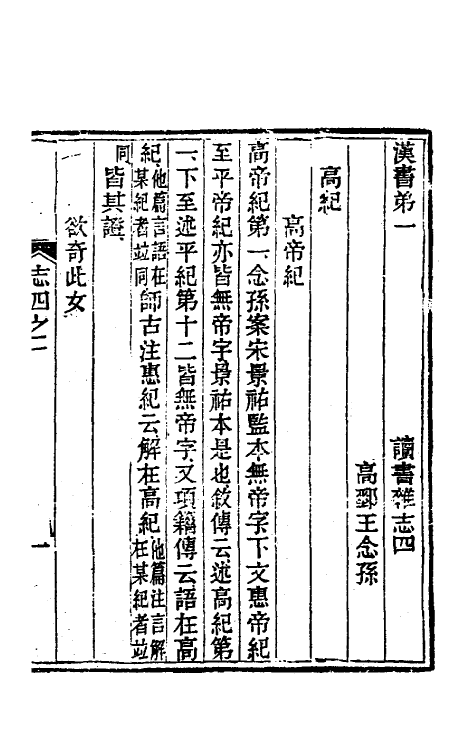 漢書弟一　　　　　讀書雜志四
高郵王念孫
高紀
高帝紀
高帝紀第一念孫案宋景祐監本無帝字下文惠帝紀
至平帝紀亦皆無帝字景祐本是也敘傳云述高紀第
一下至述平紀第十二皆無帝字又項籍傳云語在高
紀他篇言語在某紀者並同師古注惠紀云解在高紀他篇注言解在某紀者並
同皆其證
欲奇此女
志四之一　一